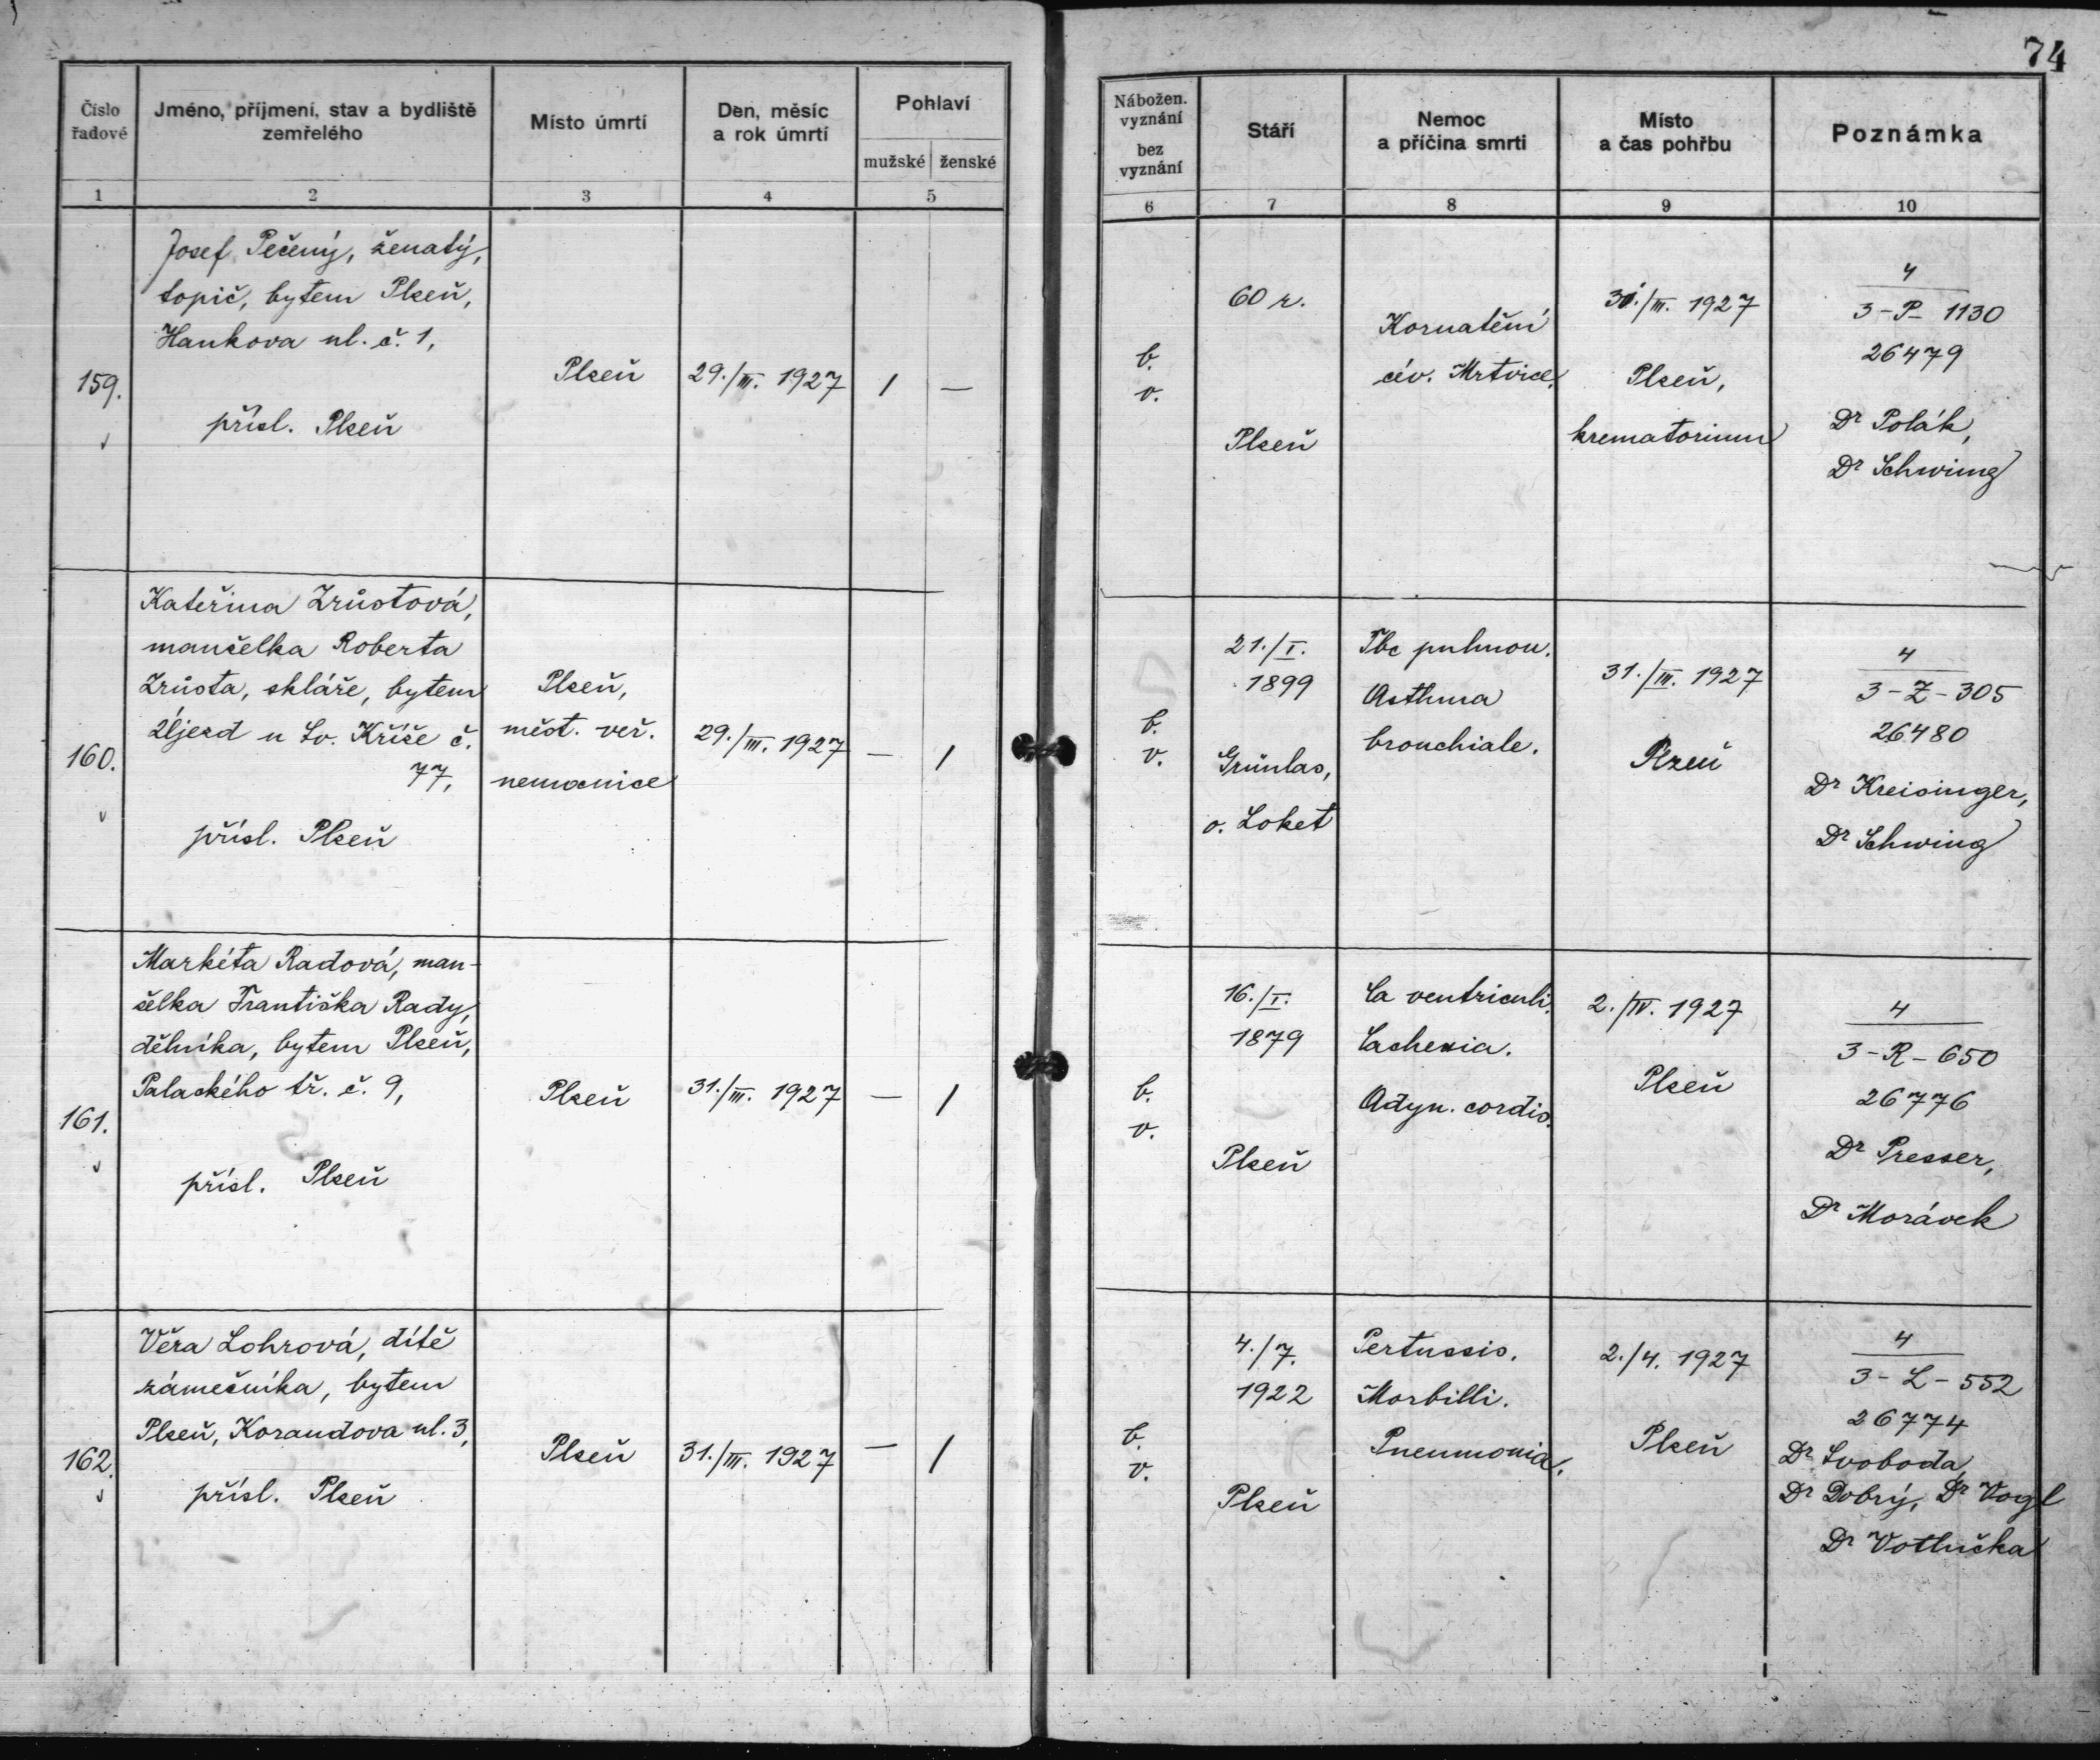 74
Číslo řadové
Jméno, příjmení, stav a bydliště zemřelého
Místo úmrtí
Den, měsíc a rok úmrtí
Pohlaví
mužské ženské
Nábožen. vyznání
bez vyznání
Stáří
Nemoc a příčina smrti
Místo a čas pohřbu
Poznámka
1 2 3 4 5 6 7 8 9 10
159.
Josef Pečený, ženatý,
topič, bytem Plzeň,
Hankova ul. č. 1,
přísl. Plzeň
Plzeň
29./III. 1927
/ —
b.
v.
60 r.
Plzeň
Kornatění
cév. Mrtvice.
31./III. 1927
Plzeň,
krematorium
4
3-P- 1130
26479
Dr Polák,
Dr Schwing
160.
Kateřina Zrůstová,
manželka Roberta
Zrůsta, skláře, bytem
Újezd u Sv. Kříže č.
77,
přísl. Plzeň
Plzeň,
měst. veř.
nemocnice
29./III. 1927
— /
b.
v.
21./I.
1899
Grünlas,
o. Loket
Tbc pulmon.
Asthma
bronchiale.
31./III. 1927
Plzeň
4
3-Z-305
26480
Dr Kreisinger,
Dr Schwing
161.
Markéta Radová, man-
želka Františka Rady,
dělníka, bytem Plzeň,
Palackého tř. č. 9,
přísl. Plzeň
Plzeň
31./III. 1927
— /
b.
v.
16./I.
1879
Plzeň
Ca ventriculi.
Cachexia.
Adyn. cordis.
2./IV. 1927
Plzeň
4
3-R-650
26776
Dr Presser,
Dr Morávek
162.
Věra Lohrová, dítě
zámečníka, bytem
Plzeň, Korandova ul. 3,
přísl. Plzeň
Plzeň
31./III. 1927
— /
b.
v.
4./7.
1922
Plzeň
Pertussis.
Morbilli.
Pneumonia.
2./4. 1927
Plzeň
4
3-L-552
26774
Dr Svoboda,
Dr Dobrý, Dr Vogl
Dr Votlučka